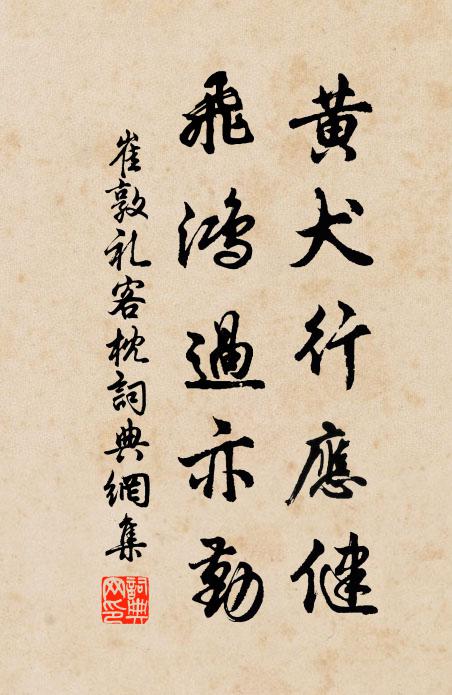 黄犬行應健
飛鴻過亦勤
崔敦礼客枕詞典網集
詞典
網印